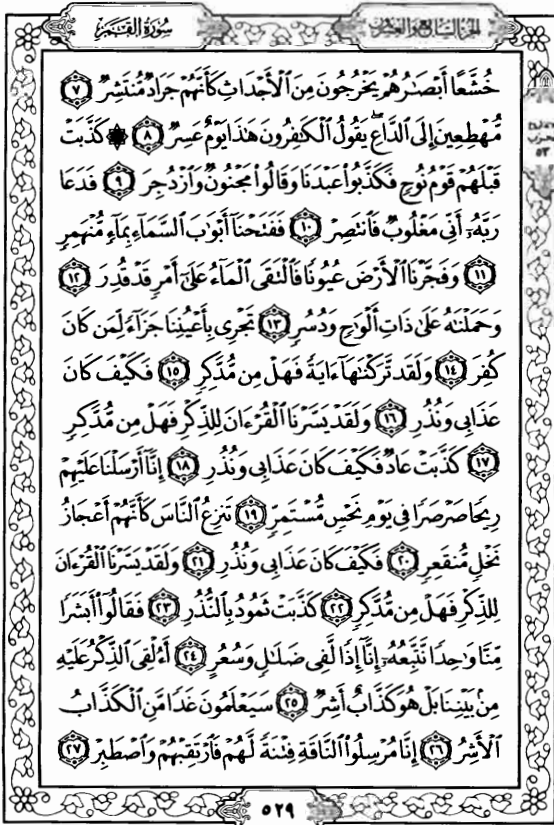 سُورَةُ القَمَرِ
الجزء السابع والعشرون
خُشَّعًا أَبْصَٰرُهُمْ يَخْرُجُونَ مِنَ ٱلْأَجْدَاثِ كَأَنَّهُمْ جَرَادٌ مُّنتَشِرٌ ٧
مُّهْطِعِينَ إِلَى ٱلدَّاعِ ۖ يَقُولُ ٱلْكَٰفِرُونَ هَٰذَا يَوْمٌ عَسِرٌ ٨ ۞ كَذَّبَتْ
قَبْلَهُمْ قَوْمُ نُوحٍ فَكَذَّبُوا۟ عَبْدَنَا وَقَالُوا۟ مَجْنُونٌ وَٱزْدُجِرَ ٩ فَدَعَا
رَبَّهُۥٓ أَنِّى مَغْلُوبٌ فَٱنتَصِرْ ١٠ فَفَتَحْنَآ أَبْوَٰبَ ٱلسَّمَآءِ بِمَآءٍ مُّنْهَمِرٍ
١١ وَفَجَّرْنَا ٱلْأَرْضَ عُيُونًا فَٱلْتَقَى ٱلْمَآءُ عَلَىٰٓ أَمْرٍ قَدْ قُدِرَ ١٢
وَحَمَلْنَٰهُ عَلَىٰ ذَاتِ أَلْوَٰحٍ وَدُسُرٍ ١٣ تَجْرِى بِأَعْيُنِنَا جَزَآءً لِّمَن كَانَ
كُفِرَ ١٤ وَلَقَد تَّرَكْنَٰهَآ ءَايَةً فَهَلْ مِن مُّدَّكِرٍ ١٥ فَكَيْفَ كَانَ
عَذَابِى وَنُذُرِ ١٦ وَلَقَدْ يَسَّرْنَا ٱلْقُرْءَانَ لِلذِّكْرِ فَهَلْ مِن مُّدَّكِرٍ
١٧ كَذَّبَتْ عَادٌ فَكَيْفَ كَانَ عَذَابِى وَنُذُرِ ١٨ إِنَّآ أَرْسَلْنَا عَلَيْهِمْ
رِيحًا صَرْصَرًا فِى يَوْمِ نَحْسٍ مُّسْتَمِرٍّ ١٩ تَنزِعُ ٱلنَّاسَ كَأَنَّهُمْ أَعْجَازُ
نَخْلٍ مُّنقَعِرٍ ٢٠ فَكَيْفَ كَانَ عَذَابِى وَنُذُرِ ٢١ وَلَقَدْ يَسَّرْنَا ٱلْقُرْءَانَ
لِلذِّكْرِ فَهَلْ مِن مُّدَّكِرٍ ٢٢ كَذَّبَتْ ثَمُودُ بِٱلنُّذُرِ ٢٣ فَقَالُوٓا۟ أَبَشَرًا
مِّنَّا وَٰحِدًا نَّتَّبِعُهُۥٓ إِنَّآ إِذًا لَّفِى ضَلَٰلٍ وَسُعُرٍ ٢٤ أَءُلْقِىَ ٱلذِّكْرُ عَلَيْهِ
مِنۢ بَيْنِنَا بَلْ هُوَ كَذَّابٌ أَشِرٌ ٢٥ سَيَعْلَمُونَ غَدًا مَّنِ ٱلْكَذَّابُ
ٱلْأَشِرُ ٢٦ إِنَّا مُرْسِلُوا۟ ٱلنَّاقَةِ فِتْنَةً لَّهُمْ فَٱرْتَقِبْهُمْ وَٱصْطَبِرْ ٢٧
حزب
٥٣
٥٢٩